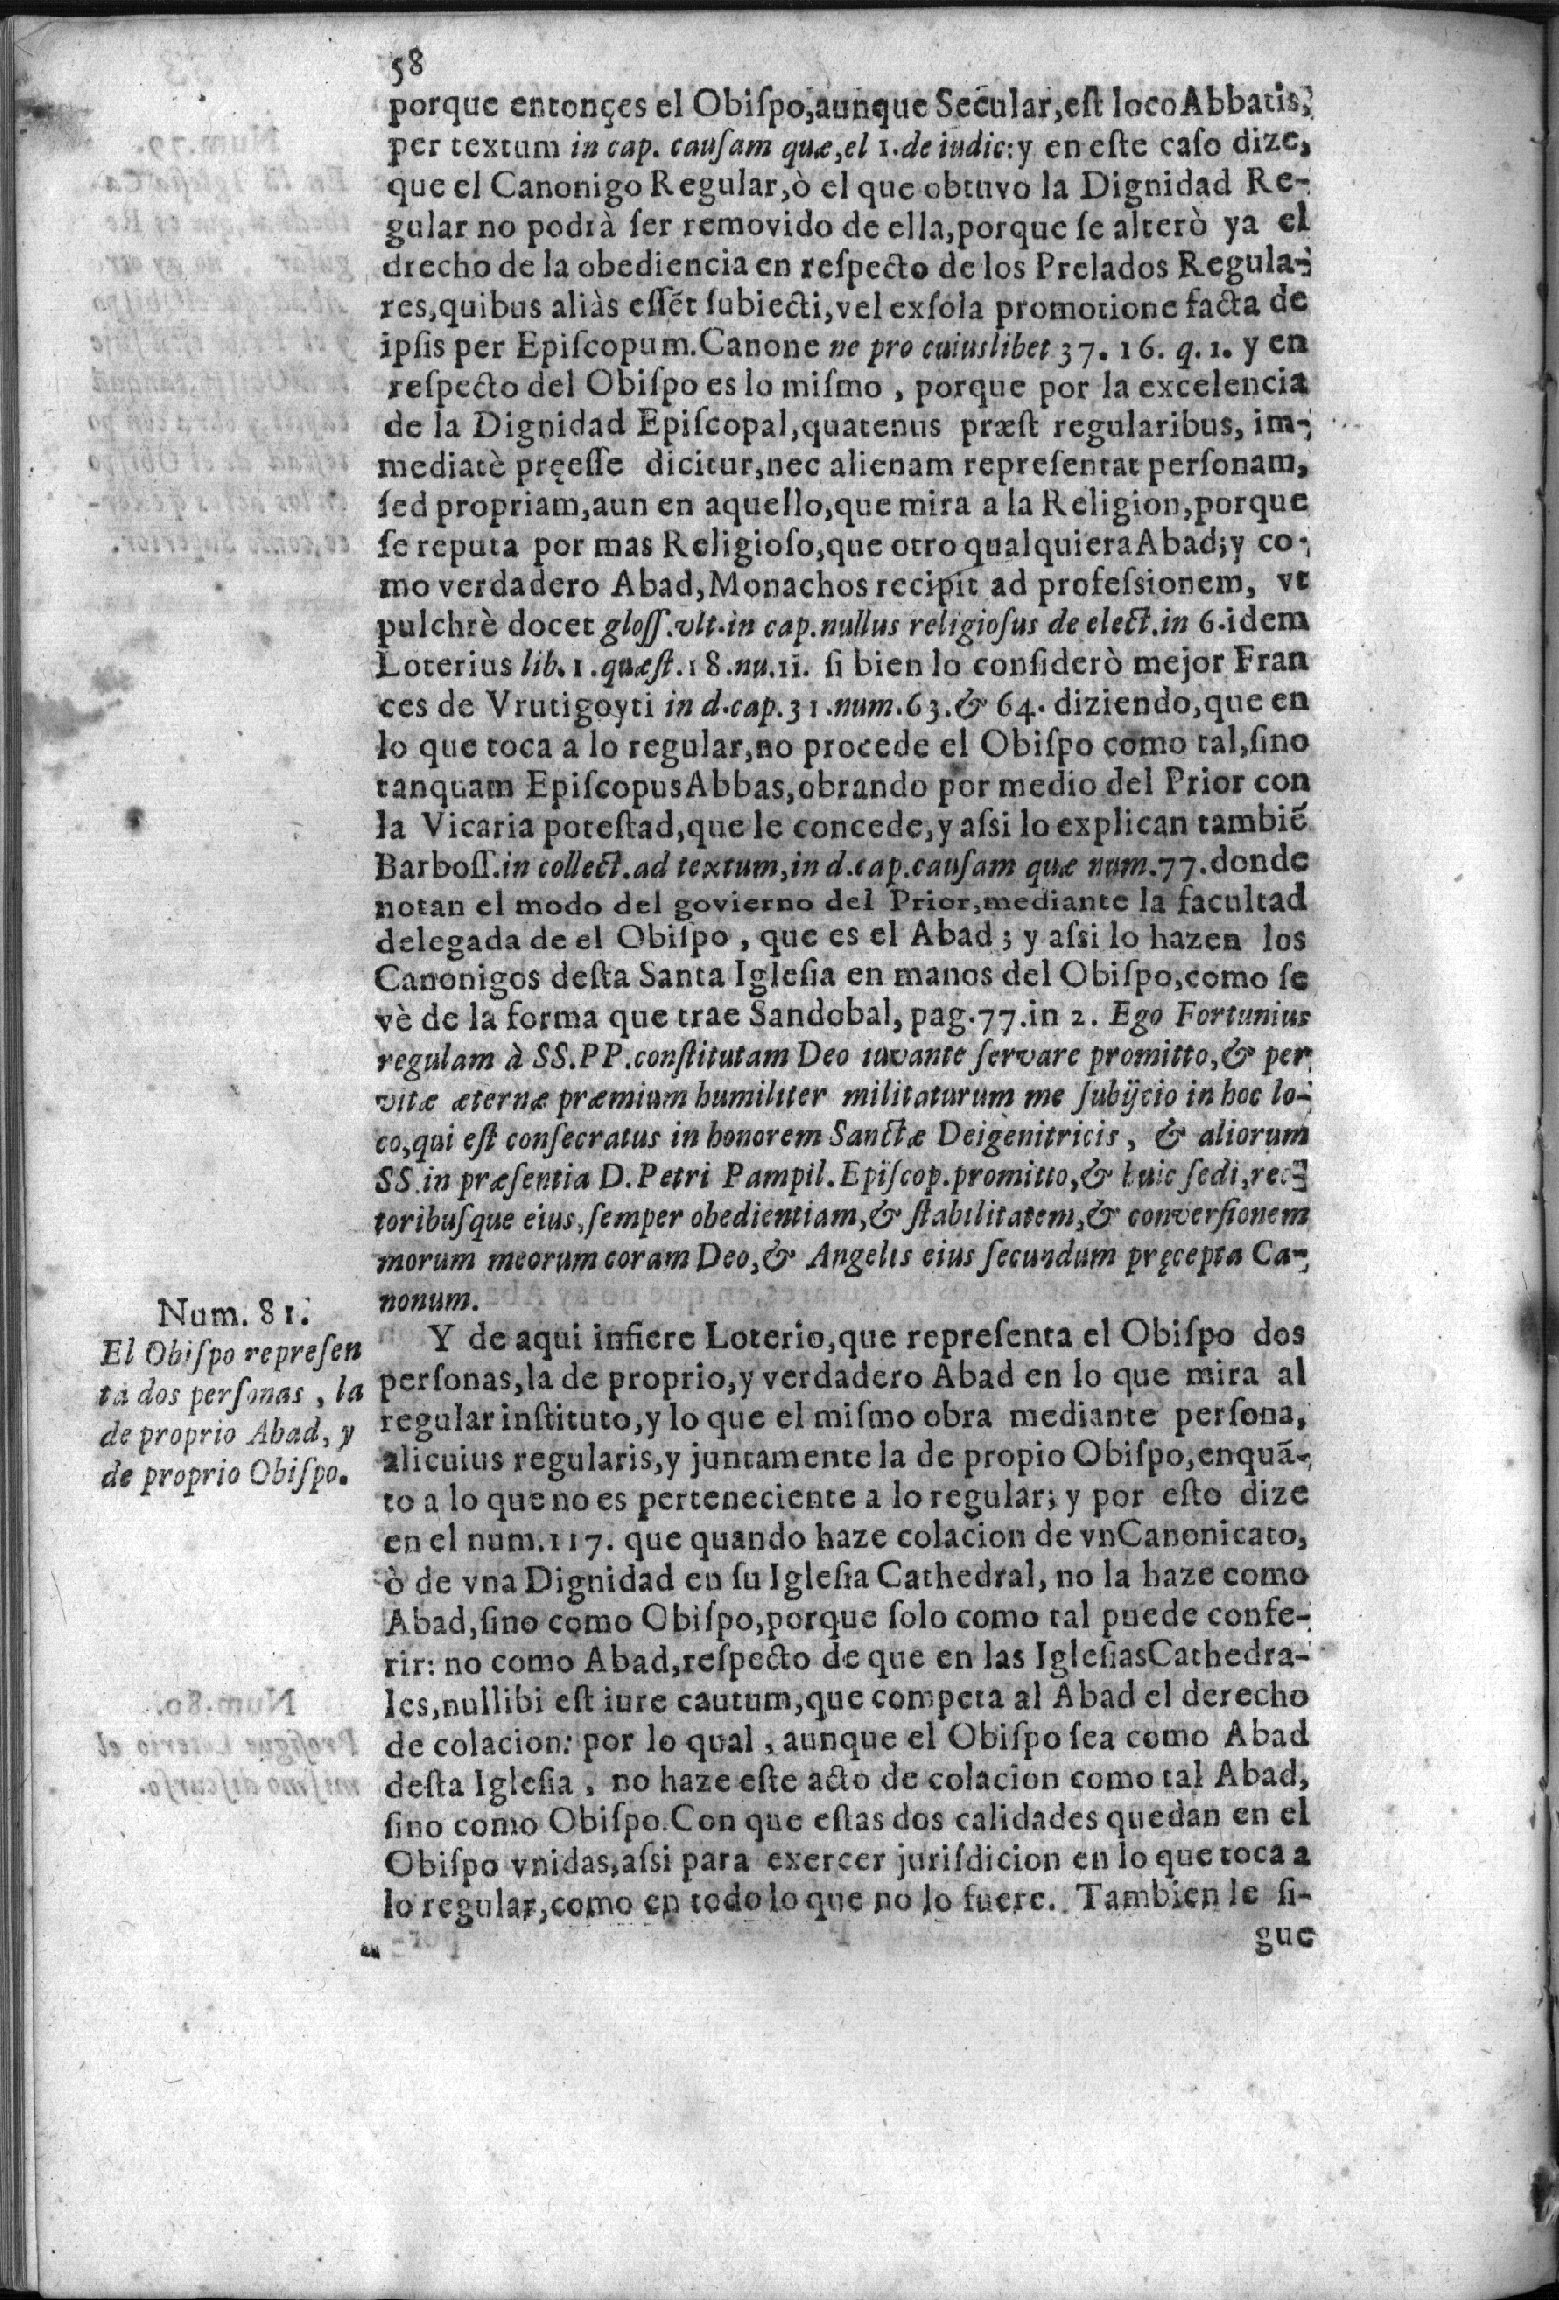 58
porque entonçes el Obiſpo,aunque Secular,eſt loco Abbatis,
per textum in cap. cauſam quæ,el 1.de iudic: y en eſte caſo dize,
que el Canonigo Regular,ò el que obtuvo la Dignidad Re-
gular no podrà ſer removido de ella,porque ſe alterò ya el
drecho de la obediencia en reſpecto de los Prelados Regula-
res,quibus aliàs eſſẽt ſubiecti,vel exſola promotione facta de
ipſis per Epiſcopum.Canone ne pro cuiuslibet 37. 16. q. 1. y en
reſpecto del Obiſpo es lo miſmo , porque por la excelencia
de la Dignidad Epiſcopal,quatenus præſt regularibus, im-
mediatè pręeſſe dicitur,nec alienam repreſentat perſonam,
ſed propriam,aun en aquello,que mira a la Religion,porque
ſe reputa por mas Religioſo,que otro qualquiera Abad;y co-
mo verdadero Abad,Monachos recipit ad profeſsionem, vt
pulchrè docet gloſſ.vlt.in cap.nullus religioſus de elect.in 6.idem
Loterius lib.1.quæſt.18.nu.11. ſi bien lo conſiderò mejor Fran
ces de Vrutigoyti in d.cap.31.num.63.& 64. diziendo,que en
lo que toca a lo regular,no procede el Obiſpo como tal,ſino
tanquam Epiſcopus Abbas,obrando por medio del Prior con
la Vicaria poteſtad,que le concede,y aſsi lo explican tambiẽ
Barboſſ.in collect.ad textum,in d.cap.cauſam quæ num.77.donde
notan el modo del govierno del Prior,mediante la facultad
delegada de el Obiſpo , que es el Abad ; y aſsi lo hazen los
Canonigos deſta Santa Igleſia en manos del Obiſpo,como ſe
vè de la forma que trae Sandobal, pag.77.in 2. Ego Fortunius
regulam à SS.PP.conſtitutam Deo iuvante ſervare promitto,& per
vitæ æternæ præmium humiliter militaturum me ſubijcio in hoc lo-
co,qui eſt conſecratus in honorem Sanctæ Deigenitricis, & aliorum
SS.in præſentia D.Petri Pampil.Epiſcop.promitto,& huic ſedi,rec-
toribuſque eius,ſemper obedientiam,& ſtabilitatem,& converſionem
morum meorum coram Deo,& Angelis eius ſecundum pręcepta Ca-
nonum.
Num. 81.
El Obiſpo repreſen
ta dos perſonas , la
de proprio Abad, y
de proprio Obiſpo.
Y de aqui infiere Loterio,que repreſenta el Obiſpo dos
perſonas,la de proprio,y verdadero Abad en lo que mira al
regular inſtituto,y lo que el miſmo obra mediante perſona,
alicuius regularis,y juntamente la de propio Obiſpo,enquã-
to a lo que no es perteneciente a lo regular; y por eſto dize
en el num.117. que quando haze colacion de vn Canonicato,
ò de vna Dignidad en ſu Igleſia Cathedral, no la haze como
Abad,ſino como Obiſpo,porque ſolo como tal puede confe-
rir: no como Abad,reſpecto de que en las Igleſias Cathedra-
les,nullibi eſt iure cautum,que competa al Abad el derecho
de colacion: por lo qual , aunque el Obiſpo ſea como Abad
deſta Igleſia , no haze eſte acto de colacion como tal Abad,
ſino como Obiſpo.Con que eſtas dos calidades quedan en el
Obiſpo vnidas,aſsi para exercer juriſdicion en lo que toca a
lo regular,como en todo lo que no lo fuere. Tambien le ſi-
gue